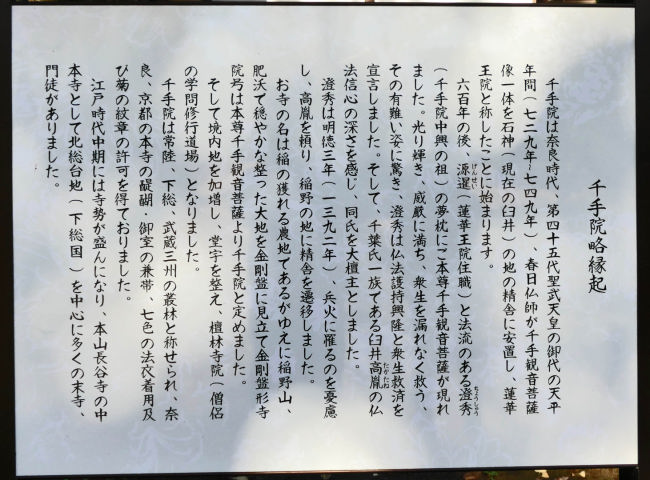 千手院略縁起
千手院は奈良時代、第四十五代聖武天皇の御代の天平
年間(七二九年-七四九年)、春日仏師が千手観音菩薩
像一体を石神(現在の臼井)の地の精舎に安置し、蓮華
王院と称したことに始まります。
六百年の後、源暹(蓮華王院住職)と法流のある澄秀
(千手院中興の祖)の夢枕にご本尊千手観音菩薩が現れ
ました。光り輝き、威厳に満ち、衆生を漏れなく救う、
その有難い姿に驚き、澄秀は仏法護持興隆と衆生救済を
宣言しました。そして、千葉氏一族である臼井高胤の仏
法信心の深さを感じ、同氏を大檀主としました。
澄秀は明徳三年(一三九二年)、兵火に罹るのを憂慮
し、高胤を頼り、稲野の地に精舎を遷移しました。
お寺の名は稲の獲れる農地であるがゆえに稲野山、
肥沃で穏やかな整った大地を金剛盤に見立て金剛盤形寺
院号は本尊千手観音菩薩より千手院と定めました。
そして境内地を加増し、堂宇を整え、檀林寺院(僧侶
の学問修行道場)となりました。
千手院は常陸、下総、武蔵三州の叢林と称せられ、奈
良、京都の本寺の醍醐・御室の兼帯、七色の法衣着用及
び菊の紋章の許可を得ておりました。
江戸時代中期には寺勢が盛んになり、本山長谷寺の中
本寺として北総台地(下総国)を中心に多くの末寺、
門徒がありました。